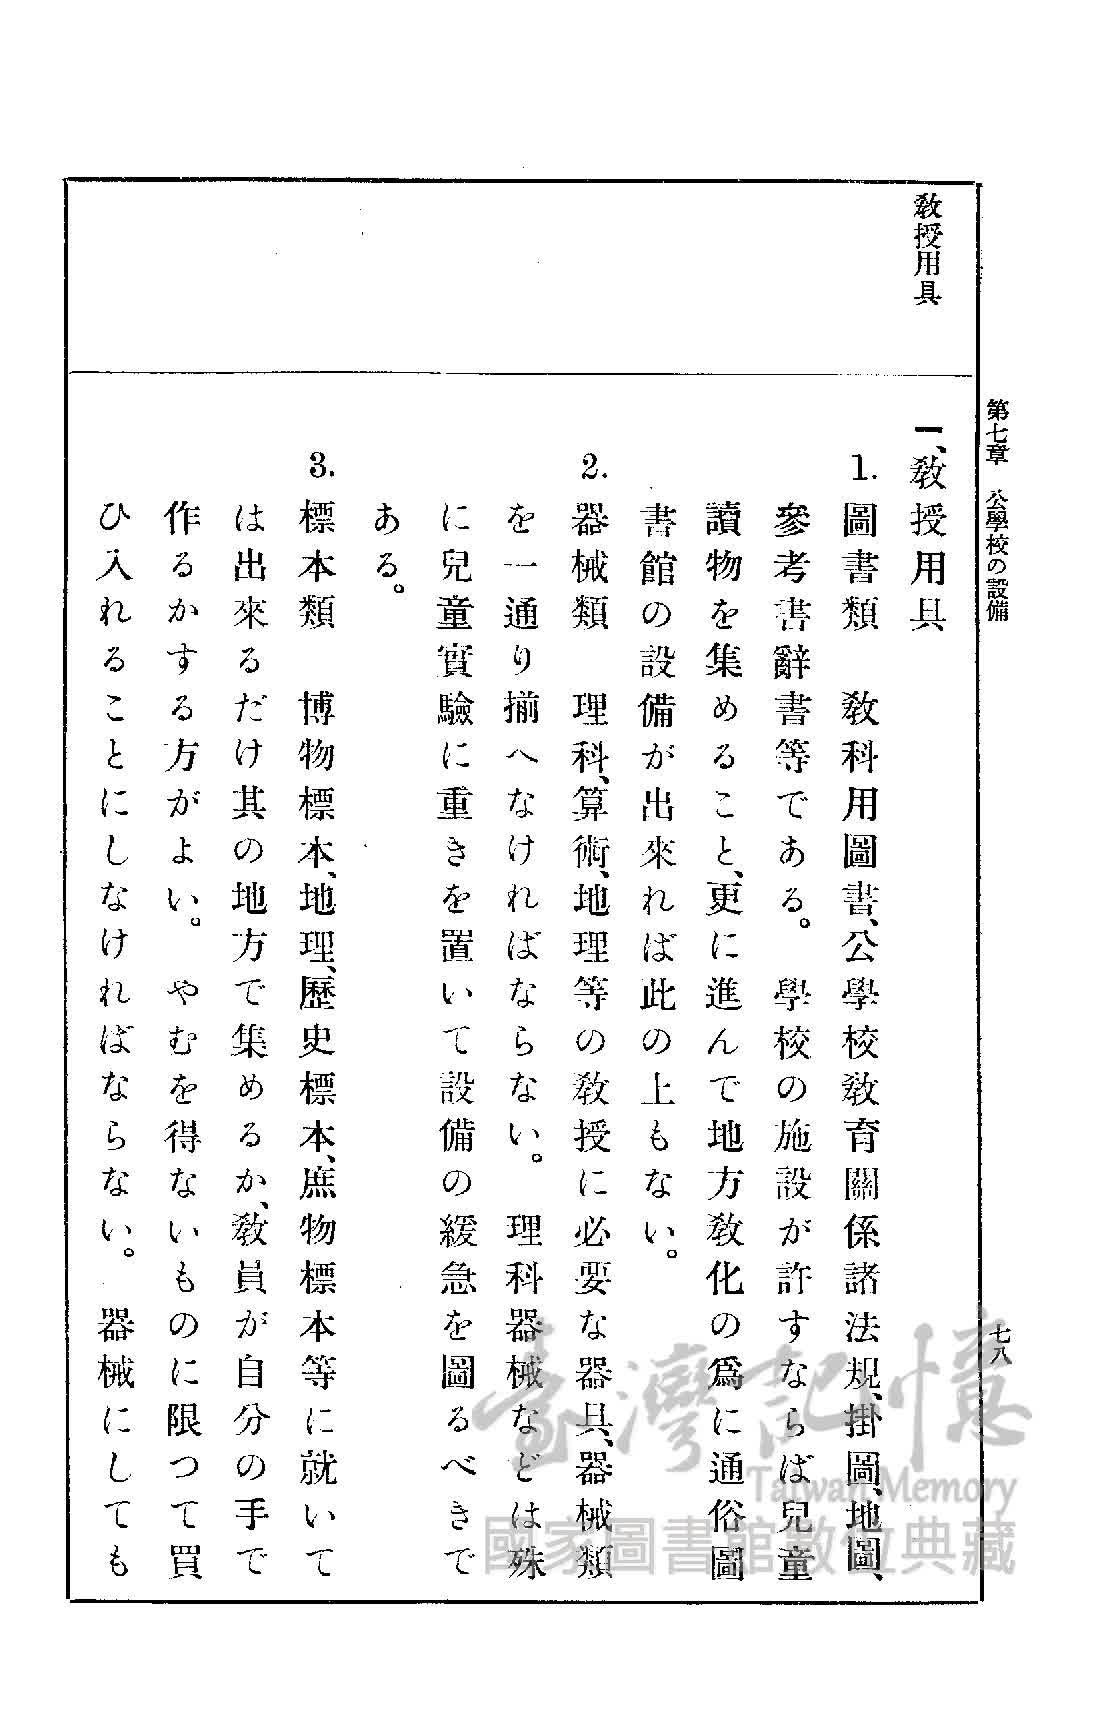 第七章　公學校の設備
七八
教授用具
一、教授用具
1. 圖書類　教科用圖書、公學校教育關係諸法規、掛圖、地圖、
參考書辭書等である。學校の施設が許すならば兒童
讀物を集めること、更に進んで地方教化の爲に通俗圖
書館の設備が出來れば此の上もない。
2. 器械類　理科、算術、地理等の教授に必要な器具、器械類
を一通り揃へなければならない。理科器械などは殊
に兒童實驗に重きを置いて設備の緩急を圖るべきで
ある。
3. 標本類　博物標本、地理、歷史標本、庶物標本等に就いて
は出來るだけ其の地方で集めるか、教員が自分の手で
作るかする方がよい。やむを得ないものに限つて買
ひ入れることにしなければならない。器械にしても
臺灣記憶
Taiwan Memory
國家圖書館數位典藏